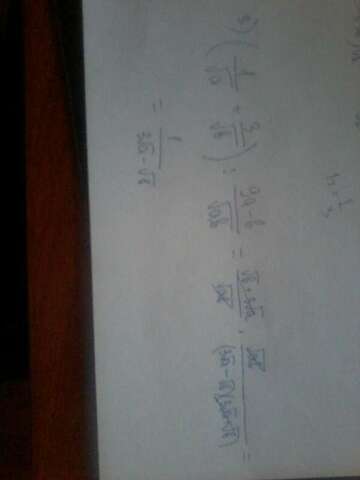 3) (1/√a + 3/√b) : 9a-b/√ab = √b+3√a/√ab · √ab/(3√a-√b)(3√a+√b) =
= 1/3√a-√b